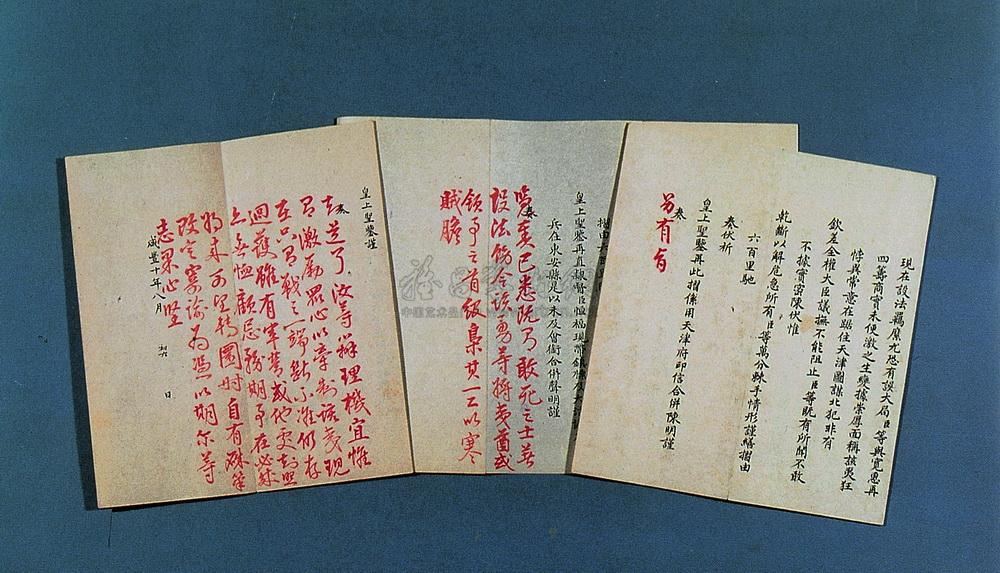 現在設法羈縻尤恐有誤大局臣等與寬惠再
四籌商實未便激之生變據崇厚面稱該夷狂
悖異常意在踞住天津圖謀北犯非有
欽差全權大臣議撫不能阻止臣等既有所聞不敢
不據實密陳伏惟
乾斷以解危急所有臣等萬分棘手情形謹繕摺由
六百里馳
奏伏祈
皇上聖鑒再此摺係用天津府印信合併陳明謹
奏
另有旨
摺由
皇上聖鑒再直隸督臣恒福現帶
兵在東安縣是以未及會銜合併聲明謹
奏
覽奏已悉既有敢死之士著
設法飭令該勇等將夷酋或
領事之首級梟其一二以寒
賊膽
皇上聖鑒謹
奏
知道了汝等辦理機宜惟
有激勵眾心以牽制該夷現
在只有戰之一端斷不准仍存
迴護雖有軍營或地
上無恤顧忌務期事在必
將來可望轉圜時自有
改定寄諭為憑以期尔等
志果心堅
咸豐十年八月 初 日